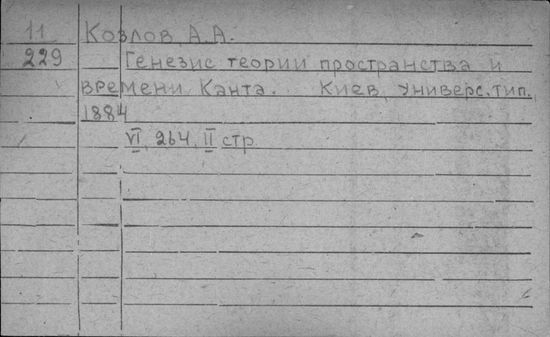 11 Козлов, А.А.
229 Генезис теории пространства и
времени Канта. Киев, Универс. тип.,
1884
VI, 264, II стр.